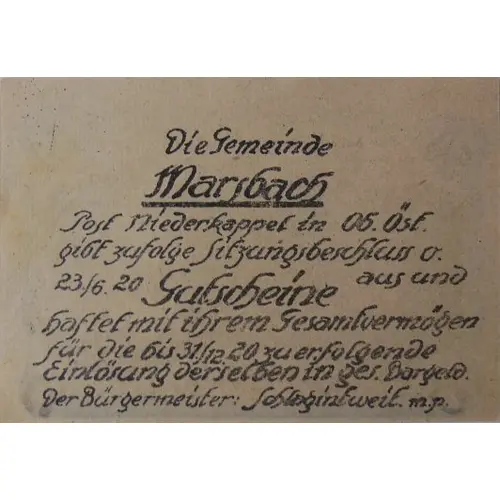 Die Gemeinde
Marsbach
Post Niederkappel in Ob. Öst.
gibt zufolge Sitzungsbeschluss v.
23./6. 20 Gutscheine aus und
haftet mit ihrem Gesamtvermögen
für die bis 31/12. 20 zu erfolgende
Einlösung derselben in ges. Bargeld.
Der Bürgermeister: Schlagintweit. m.p.